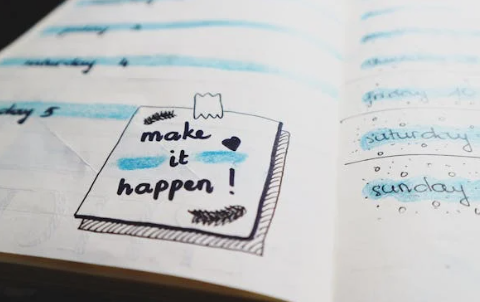 saturday 4
day 5
make
it
happen !
saturday
sunday